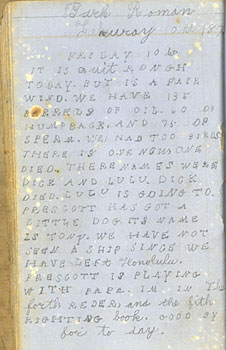 Bark Roman
FRIDAY 10
IT IS quit ROUGH
TODAY. BUT IS A FAIR
WIND. WE HAVE 135
BARRELS OF OIL. 60 OF
HUMPBACK. AND 75. OF
SPERM. WE HAD TOO BIRDS
THERE IS ONE NOW ONE
DIED. THERE NAMES WERE
DICK AND LULU. DICK
DIED. LULU IS GOING TO.
PRESCOTT HAS GOT A
LITTLE DOG. ITS NAME
IS TONY. WE HAVE NOT
SEEN A SHIP SINCE WE
HAVE LEFT Honolulu.
PRESCOTT IS PLAYING
WITH PAPA. IM IN The
forth REDER, and the fith
RIGHTING book. GOOD BY
for to day.